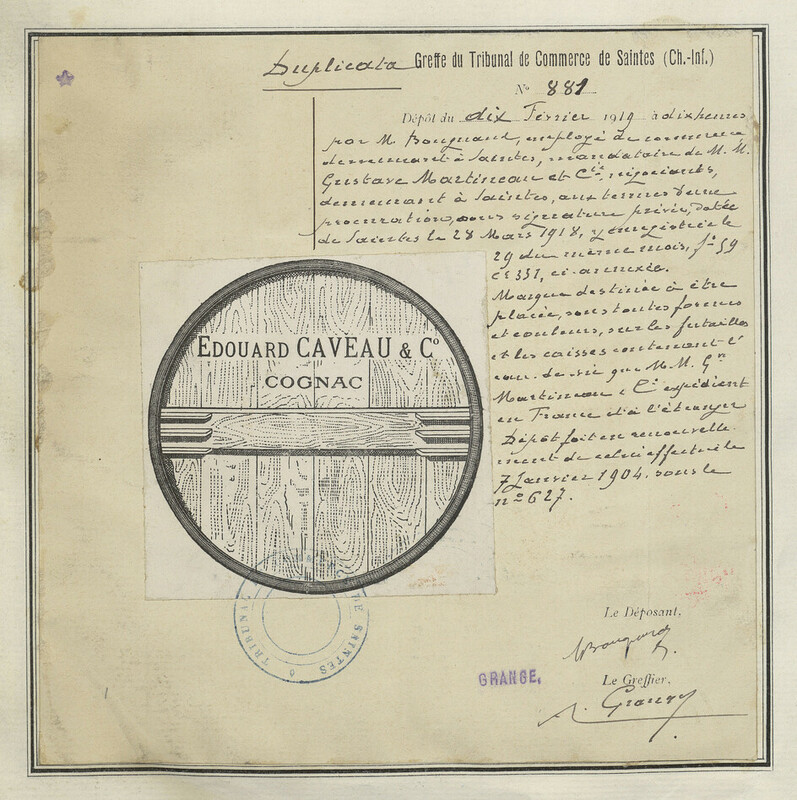 Duplicata Greffe du Tribunal de Commerce de Saintes (Ch.-Inf.)
N° 881
Dépôt du dix Février 1919 à dix heures
par M. employé de commerce
demeurant à Saintes, mandataire de M. M.
Gustave Martineau et Cie, négociants,
demeurant à Saintes, aux termes d'une
procuration, sous signature privée, datée
de Saintes le 28 Mars 1918, y enregistrée le
29 du même mois, f° 59
cse 351, ci-annexée.
Marque destinée à être
placée, sous toutes formes
et couleurs, sur les futailles
et les caisses contenant l'
eau-de-vie que M. M. Gve
Martineau & Cie expédient
en France et à l'étranger
Dépôt fait en renouvelle-
ment de celui effectué le
7 Janvier 1904, sous le
n° 627.
EDOUARD CAVEAU & Co
COGNAC
TRIBUNAL DE SAINTES
Le Déposant,
GRANGE,
Le Greffier,